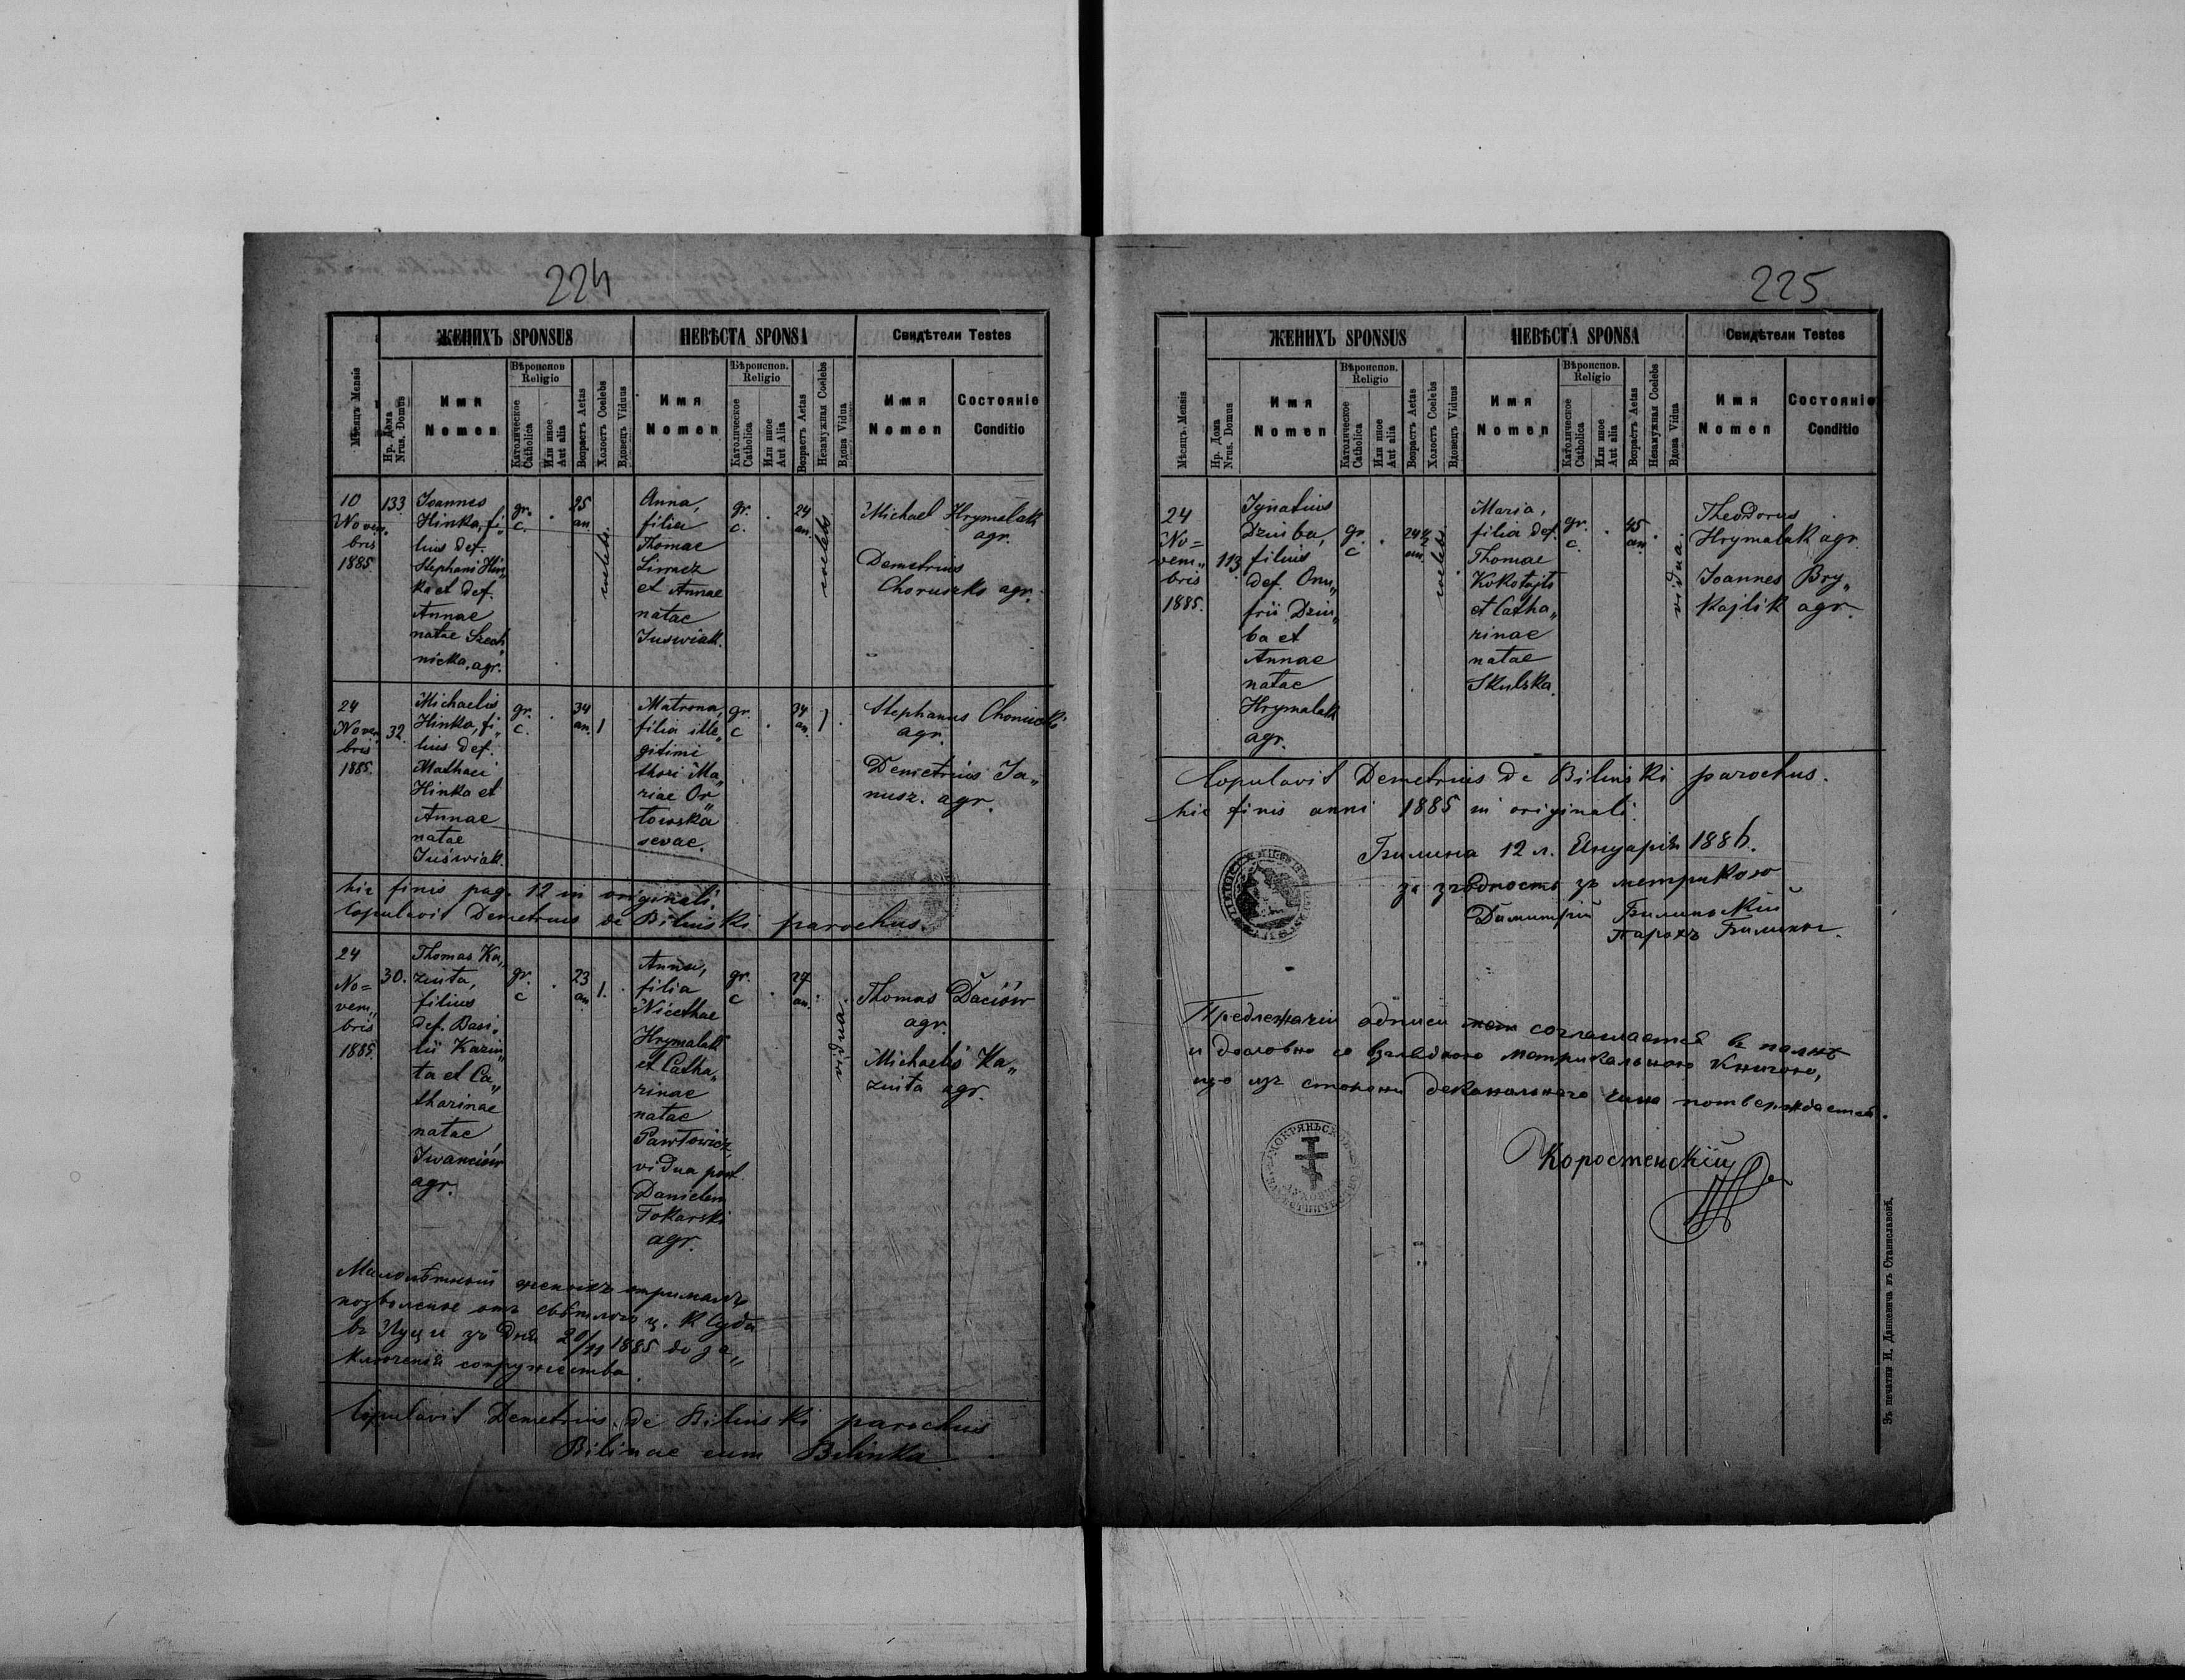 224
ЖЕНИХЪ SPONSUS
НЕВѢСТА SPONSA
Свидѣтели Testes
Мѣсяцъ Mensis
Нр. Дома
Nrus. Domus
Имя
Nomen
Вѣроиспов
Religio
Католическое
Catholica
Или иное
Aut alia
Возрастъ Aetas
Холостъ Coelebs
Вдовецъ Viduus
Имя
Nomen
Вѣроиспов.
Religio
Католическое
Catholica
Или иное
Aut Alia
Возрастъ Aetas
Незамужная Coelebs
Вдова Vidua
Имя
Nomen
Состояніе
Conditio
10
Novem„
bris
1885.
133.
Joannes
Hinka, fi„
lius def.
Stephani Hin„
ka et def.
Annae
natae Szech„
nicka, agr.
gr.
c.
25
an.
coelebs.
Anna,
filia
Thomae
et Annae
natae
Juswiak.
gr.
c.
24
an.
coelebs
Michael Hrymalak
agr.
Demetrius
Choruszko agr.
24
Novem
bris
1885.
32.
Michaelis
Hinka, fi„
lius def.
Mathaei
Hinka et
Annae
natae
Juświak.
gr.
c.
34
an.
1
Matrona,
filia ille„
gitimi
thori Ma„
riae Or„
łowska
sevae.
gr.
c
34
an.
1.
Stephanus
agr.
Demetrius Ja„
nusz. agr.
hic finis pag. 12 in originali.
Copulavit Demetrius de Bilinski parochus.
24
No=
vem„
bris
1885.
30.
Thomas Ka„
zuita,
filius
def. Basi„
lii Kazui„
ta et Ca„
tharinae
natae
Iwanciów
agr.
gr.
c
23
an.
1.
Anna,
filia
Nicethae
Hrymalak
et Catha„
rinae
natae
Pawłowicz,
vidua post
Danielem
Tokarski
agr.
gr.
c
27
an.
vidua.
Thomas Daciów
agr.
Michaelis Ka„
zuita agr.
Малолѣтный женихъ отрималъ
позволенье отъ свѣтлого ц. к Суда
въ Луци зъ дня 20/11 1885 до за„
ключенія супружества.
Copulavit Demetrius de Bilinski parochus
Bilinae cum Bilinka
225
ЖЕНИХЪ SPONSUS
НЕВѢСТА SPONSA
Свидѣтели Testes
Мѣсяцъ Mensis
Нр. Дома
Nrus. Domus
Имя
Nomen
Вѣроиспов.
Religio
Католическое
Catholica
Или иное
Aut alia
Возрастъ Aetas
Холостъ Coelebs
Вдовецъ Viduus
Имя
Nomen
Вѣроиспов.
Religio
Католическое
Catholica
Или иное
Aut alia
Возрастъ Aetas
Незамужная Coelebs
Вдова Vidua
Имя
Nomen
Состояніе
Conditio
24
No=
vem„
bris
1885.
113.
Ignatius
Dziuba,
filius
def. Onu„
frii Dziu„
ba et
Annae
natae
Hrymalak
agr.
gr.
c
24½
an.
coelebs.
Maria,
filia def.
Thomae
Kokotajło
et Catha„
rinae
natae
Skulska.
gr.
c.
45
an.
vidua.
Theodorus
Hrymalak agr.
Joannes Bry„
kajlik agr.
Copulavit Demetrius de Bilinski parochus.
hic finis anni 1885 in originali.
Билина 12 л. Януарія 1886.
за згôдность зъ метрикою
Димитрій Билиньскій
парохъ Билины.
Предлежачіи одписи соглашается в полнѣ
и дословно со взглядною метрикальною книгою,
що изъ стороны деканального чина потверждается.
Коростенскій
Зъ печатни И. Данкевича въ Станиславовѣ.